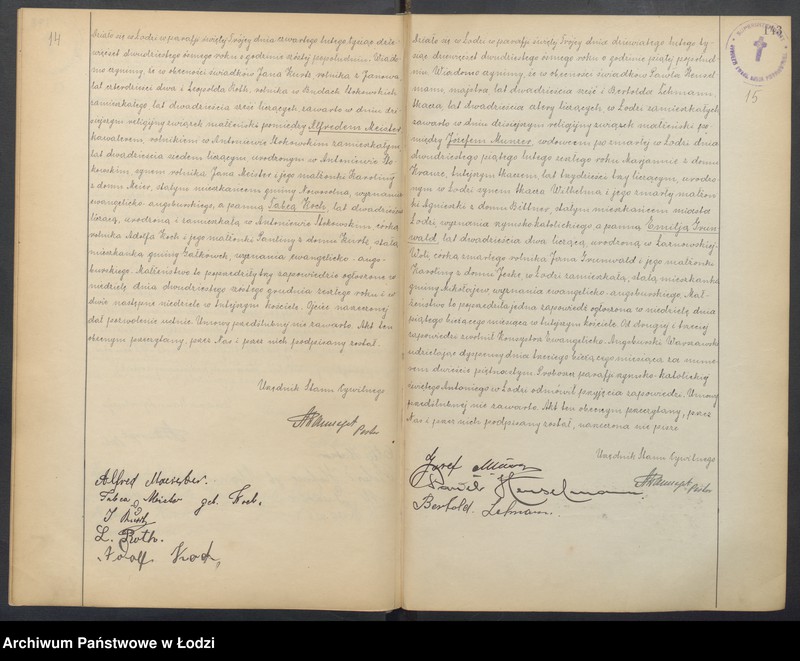 14
Działo się w Łodzi w parafji świętej Trójcy dnia czwartego lutego tysiąc dzie-
więćset dwudziestego ósmego roku o godzinie szóstej popołudniu. Wiado-
mo czynimy, że w obecności świadków Jana Knoth rolnika z Janowa,
lat czterdzieści dwa i Leopolda Roth, rolnika w Budach Stokowskich
zamieszkałego lat dwadzieścia sześć liczących zawarto w dniu dzi-
siejszym religijny związek małżeński pomiędzy Alfredem Meister
kawalerem, rolnikiem w Antoniewie Stokowskim zamieszkałym,
lat dwadzieścia siedem liczącym, urodzonym w Antoniewie Sto-
kowskim, synem rolnika Jana Meister i jego małżonki Karoliny
z domu Meier, stałym mieszkańcem gminy Nowosolna, wyznania
ewangelicko-augsburskiego, a panną Tabeą Koch, lat dwadzieścia
liczącą, urodzoną i zamieszkałą w Antoniewie Stokowskim, córką
rolnika Adolfa Koch i jego małżonki Pauliny z domu Knoth, stałą
mieszkanką gminy Gałkówek, wyznania ewangelicko-augs-
burskiego. Małżeństwo to poprzedziły trzy zapowiedzie ogłoszone w
niedzielę dnia dwudziestego szóstego grudnia zeszłego roku i w
dwie następne niedziele w tutejszym kościele. Ojciec narzeczonej
dał pozwolenie ustnie. Umowy przedślubnej nie zawarto. Akt ten
obecnym przeczytany, przez Nas i przez nich podpisany został.
Urzędnik Stanu Cywilnego
Alfred Meister.
Tabea Meister geb. Koch.
L. Roth.
Adolf Koch,
143
15
Działo się w Łodzi w parafji świętej Trójcy dnia dziewiątego lutego ty-
siąc dziewięćset dwudziestego ósmego roku o godzinie piątej popołud-
niu. Wiadomo czynimy, że w obecności świadków Pawła Hensel-
mann, majstra lat dwadzieścia sześć i Bertolda Lehmann
tkacza, lat dwadzieścia cztery liczących, w Łodzi zamieszkałych
zawarto w dniu dzisiejszym religijny związek małżeński po-
między Józefem Muncer, wdowcem po zmarłej w Łodzi dnia
dwudziestego piątego lutego zeszłego roku Marjannie z domu
Kranc, tutejszym tkaczem, lat trzydzieści trzy liczącym, urodzo-
nym w Łodzi synem tkacza Wilhelma i jego zmarłej małżon-
ki Agnieszki z domu Bittner, stałym mieszkańcem miasta
Łodzi, wyznania rzymsko-katolickiego, a panną Emilją Grun-
wald, lat dwadzieścia dwa liczącą, urodzoną w Czarnowskiej-
Woli, córką zmarłego rolnika Jana Grunwald i jego małżonki
Karoliny z domu Jeske, w Łodzi zamieszkałą, stałą mieszkanką
gminy Mikołajew wyznania ewangelicko-augsburskiego. Mał-
żeństwo to poprzedziła jedna zapowiedź ogłoszona w niedzielę dnia
piątego bieżącego miesiąca w tutejszym kościele. Od drugiej i trzeciej
zapowiedzi zwolnił Konsystorz Ewangelicko-Augsburski Warszawski
udzielając dyspensy dnia trzeciego bieżącego miesiąca za nume-
rem dwieście piętnastym. Proboszcz parafji rzymsko-katolickiej
świętego Antoniego w Łodzi odmówił przyjęcia zapowiedzi. Umowy
przedślubnej nie zawarto. Akt ten obecnym przeczytany, przez
Nas i przez nich podpisany został, narzeczona nie pisze.
Urzędnik Stanu Cywilnego
Józef
Henselmann
Berthold Lehmann.
Archiwum Państwowe w Łodzi